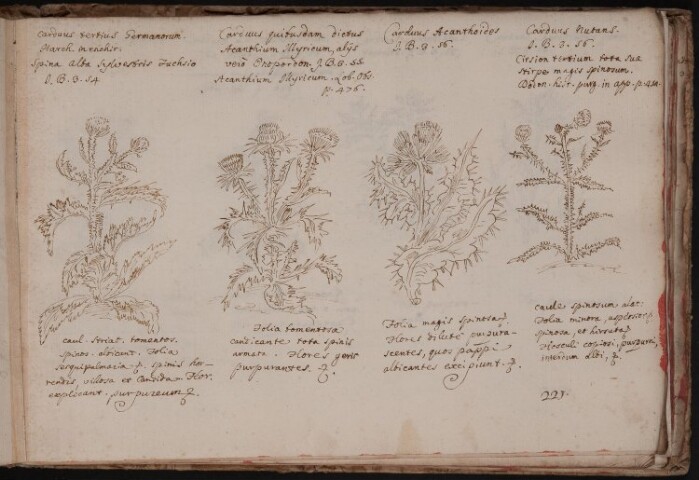 Carduus tertius Germanorum.
March.
Spina alta sylvestris Fuchsio
J. B. 3. 54
Carduus quibusdam dictus
Acanthium Illyricum, alijs
vero Onopordon. J. B. 3. 55
Acanthium Illyricum. Lob. Obs.
p. 476.
Carduus Acanthoides
J. B. 3. 56.
Carduus Nutans.
J. B. 3. 56.
Cirsion tertium tota sua
stirpe magis spinosum.
Dodon. hist. purg. in app. p.
caul. striat. tomentos.
spinos. albicant. Folia
sesquipedalia p. spinis hor-
rendis, villosa et candida. Flor.
explicant. purpureum
Folia tomentosa
candicante tota spinis
armata. Flores
purpurantes.
Folia magis spinosa,
Flores dilute purpura-
scentes, quos pappi
albicantes excipiunt.
caule spinosum alet:
Folia minora, asplosce
spinosa, et hirsuta,
Flosculi copiosi, purpurei,
interdum albi.
221.